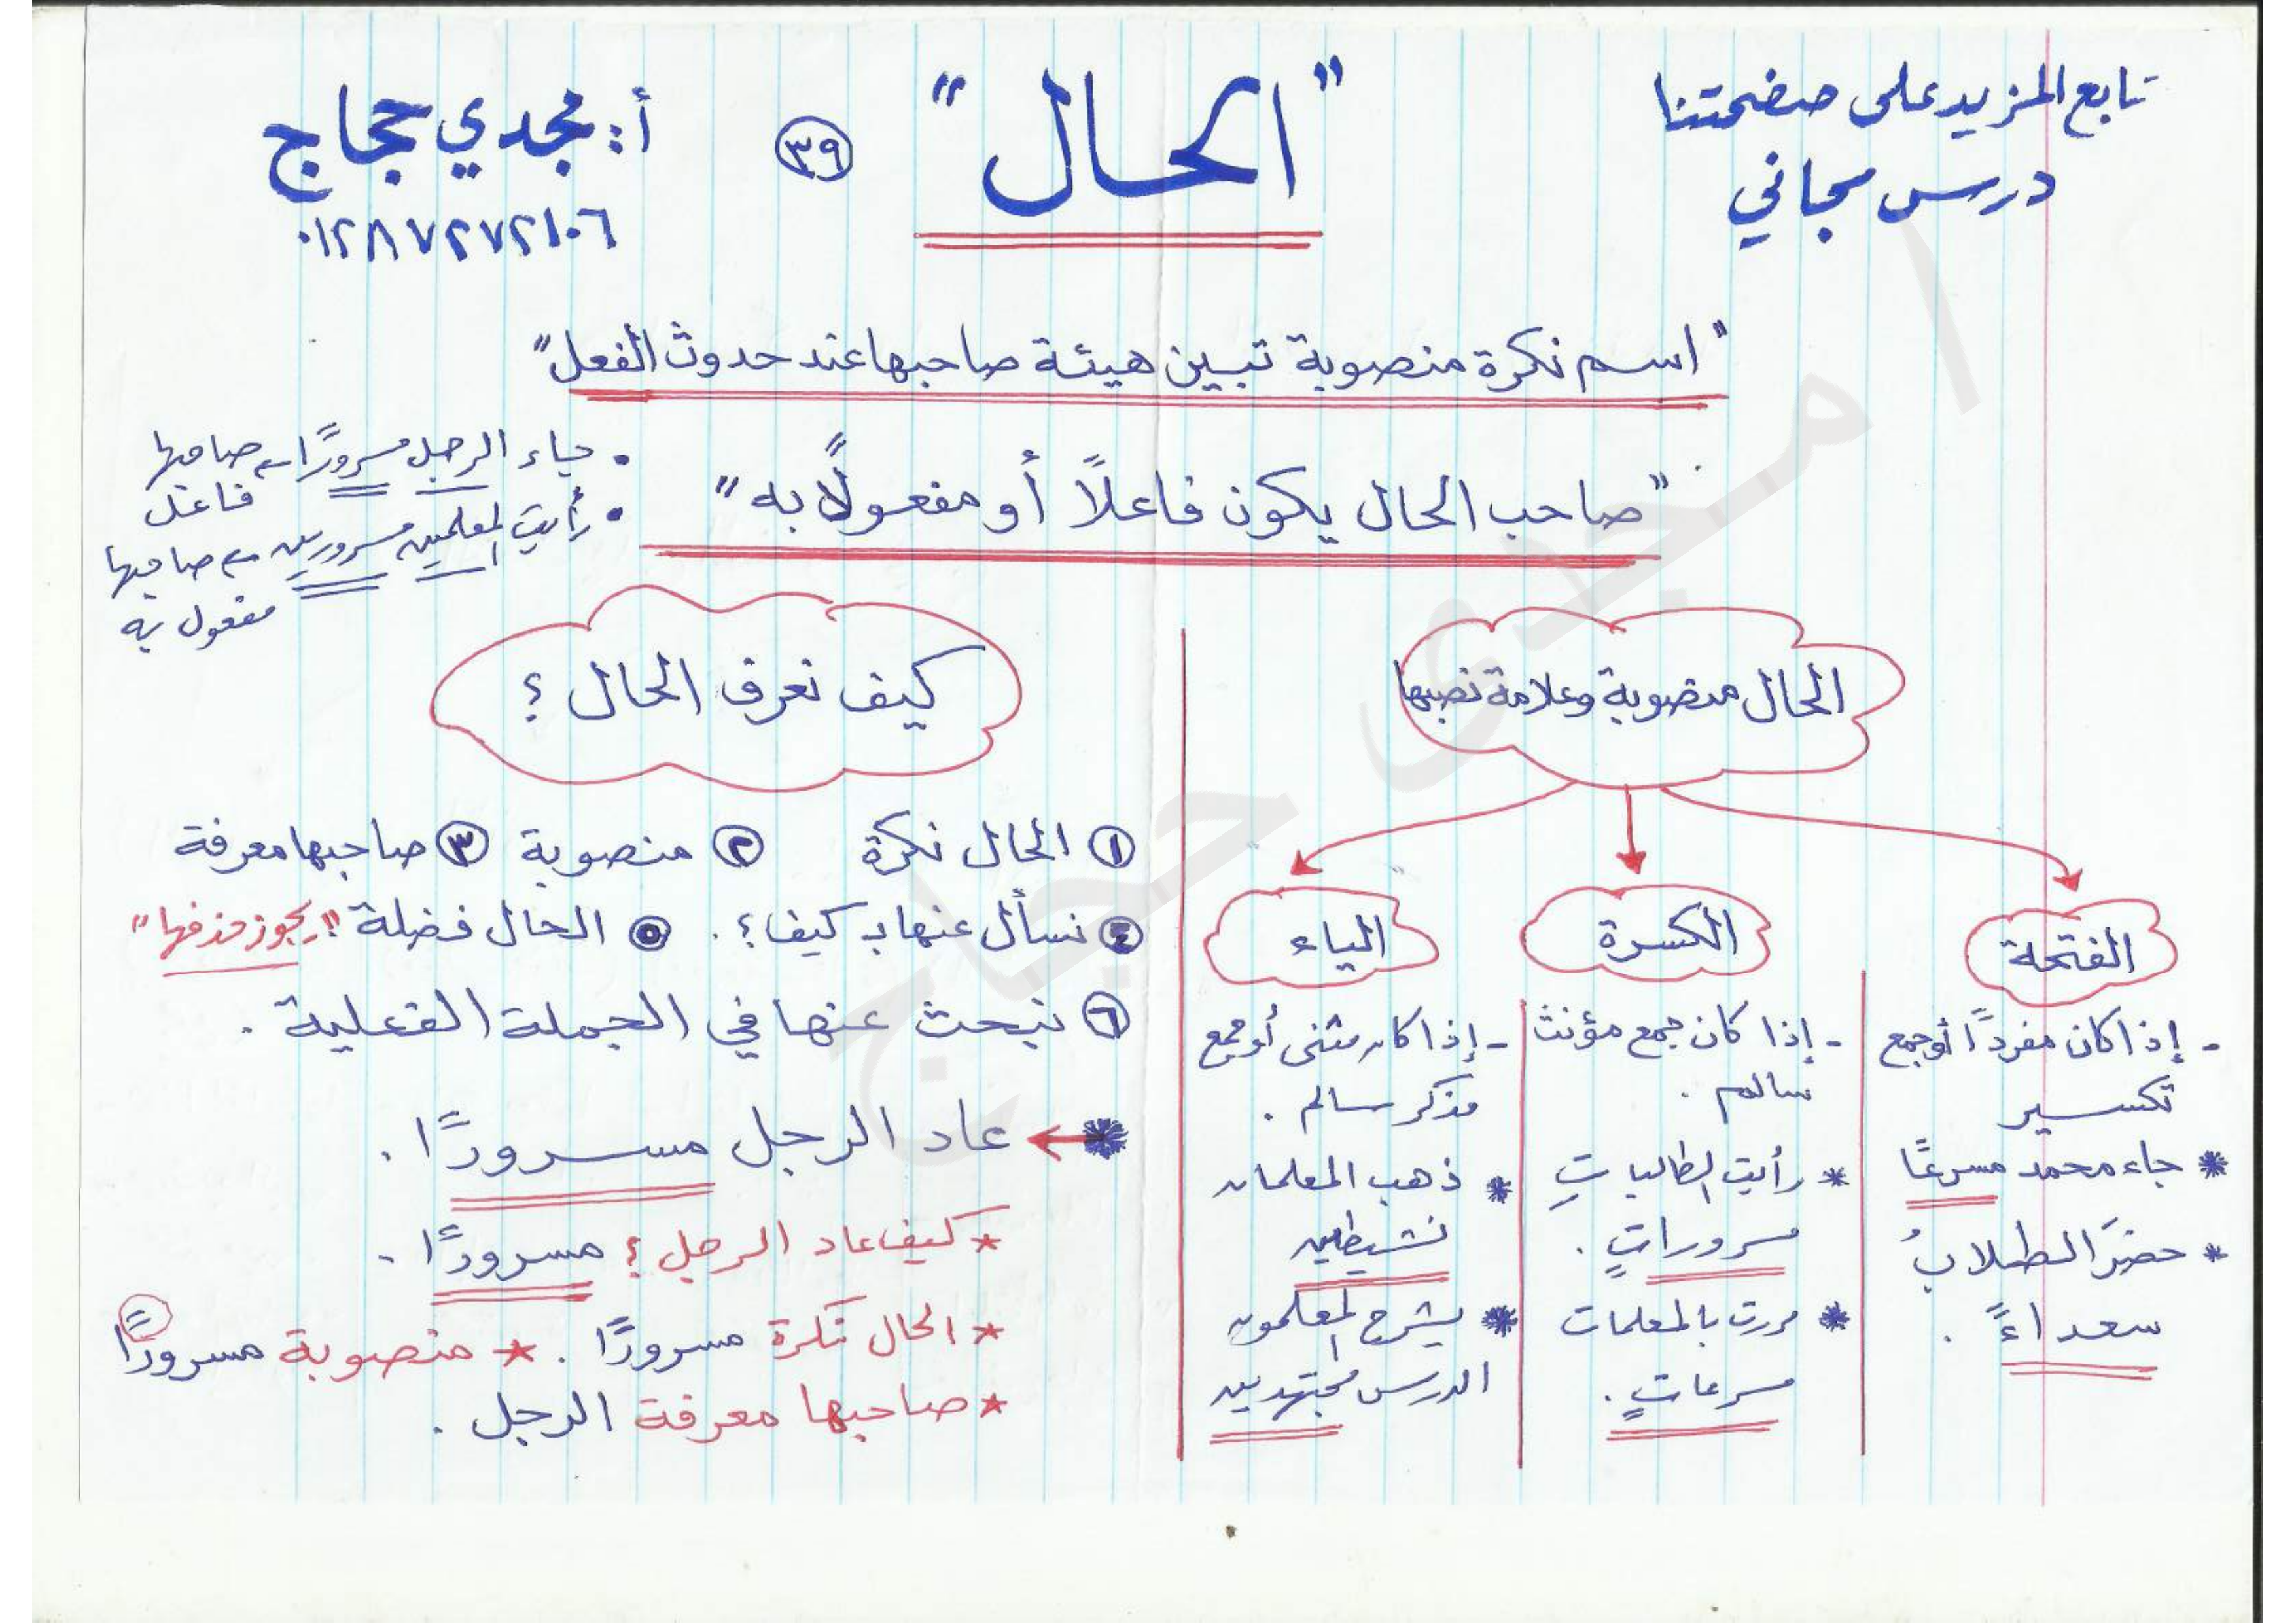 تابع المزيد على صفحتنا
درس مجاني
"الحال"
٣٩
أ: مجدي حجاج
٠١٢٨٧٢٧٢١٠٦
"اسم نكرة منصوبة تبين هيئة صاحبها عند حدوث الفعل"
"صاحب الحال يكون فاعلاً أو مفعولاً به"
• جاء الرجل مسرورًا ← صاحبها
فاعل
• رأيت المعلمين مسرورين ← صاحبها
مفعول به
الحال منصوبة وعلامة نصبها
الفتحة
- إذا كان مفردًا أو جمع
تكسير
* جاء محمد مسرعًا
* حضرَ الطلابُ
سعداءً .
الكسرة
- إذا كان جمع مؤنث
سالم .
* رأيت الطالباتِ
مسروراتٍ .
* مررت بالمعلمات
مسرعاتٍ .
الياء
- إذا كان مثنى أو جمع
مذكر سالم .
* ذهب المعلمان
نشيطين
* يشرح المعلمون
الدرس مجتهدين
كيف نعرف الحال ؟
١ الحال نكرة ٢ منصوبة ٣ صاحبها معرفة
٤ نسأل عنها بـ كيف ؟ . ٥ الحال فضلة "يجوز حذفها"
٦ نبحث عنها في الجملة الفعلية .
* ← عاد الرجل مسرورًا .
* كيف عاد الرجل ؟ مسرورًا .
* الحال نكرة مسرورًا . * منصوبة مسرورًا
* صاحبها معرفة الرجل .
أ مجدى حجاج